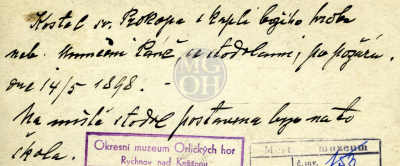 Kostel sv. Prokopa s kaplí božího hrobu
neb. Umučení Páně, se stodolami, po požáru
dne 14/5 1898. -
MG
OH
Na místě stodol postavena byla na to
škola.
Okresní muzeum Orlických hor
Rychnov nad Kněžnou
Městské muzeum
i. inv. 156